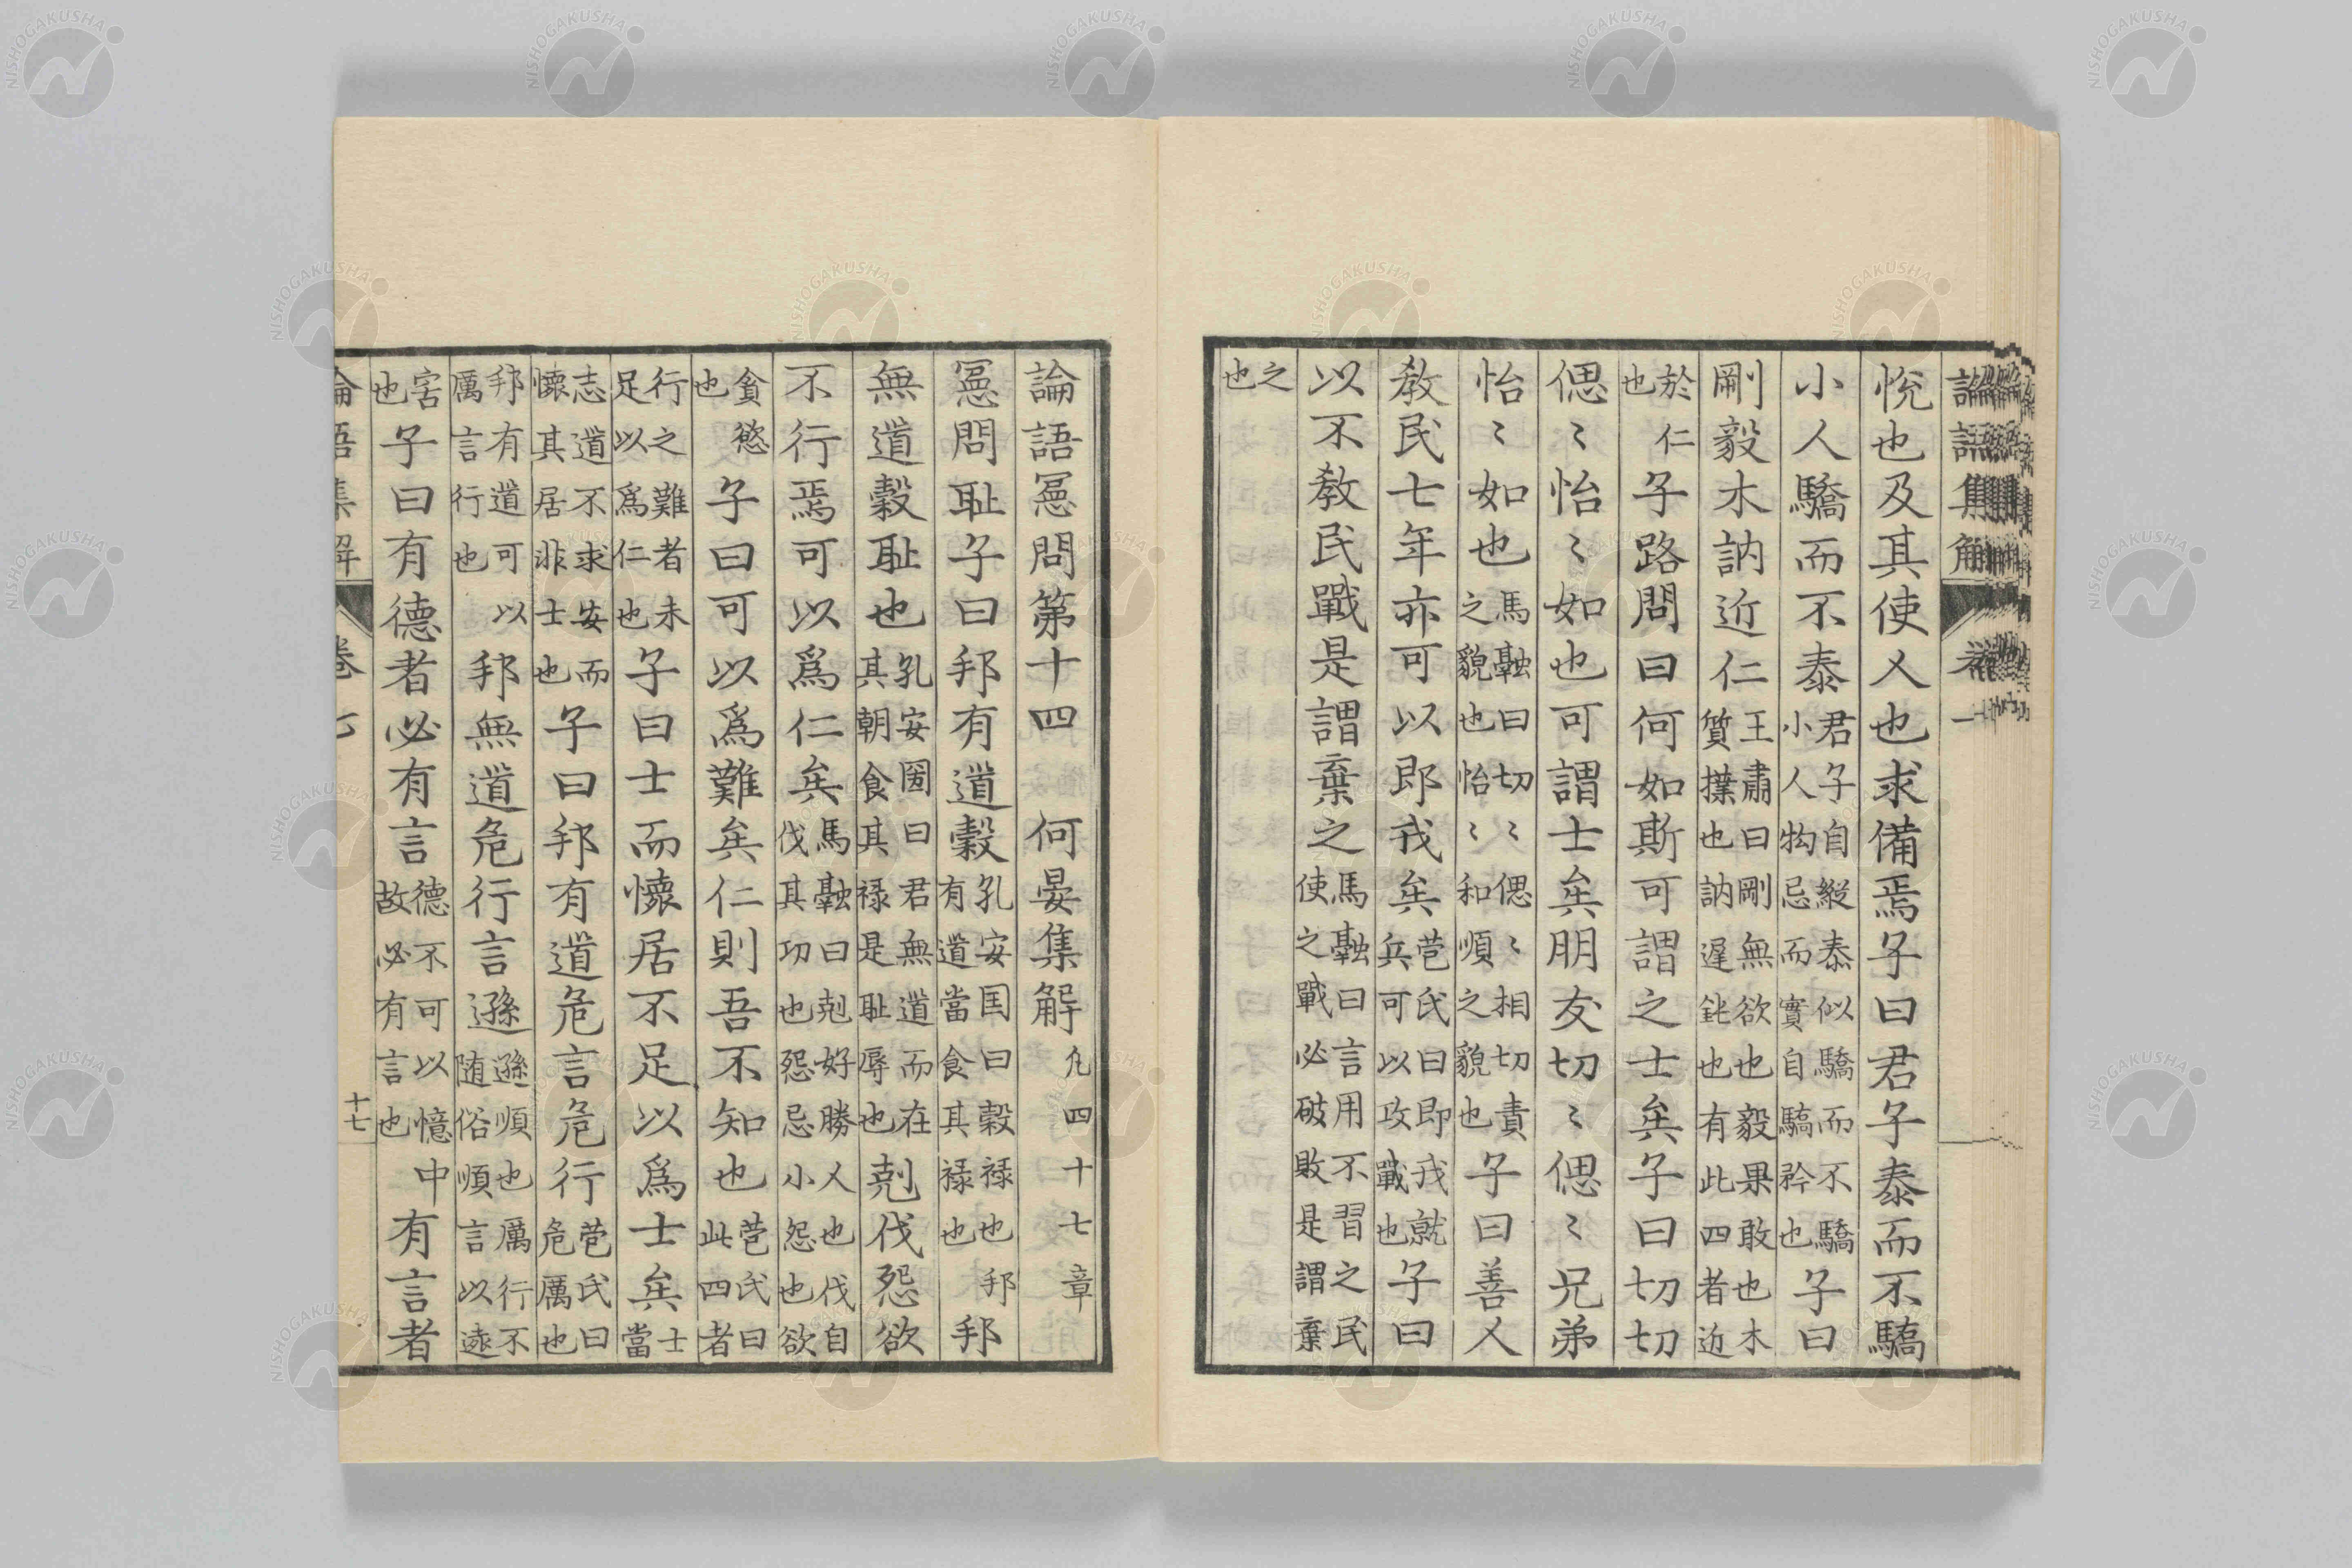 悅也及其使人也求備焉子曰君子泰而不驕
小人驕而不泰君子自縱泰似驕而不驕小人拘忌而實自驕矜也子曰
剛毅木訥近仁王肅曰剛無欲也毅果敢也木質樸也訥遲鈍也有此四者近
於仁也子路問曰何如斯可謂之士矣子曰切切
偲〻怡〻如也可謂士矣朋友切〻偲〻兄弟
怡〻如也馬融曰切〻偲〻相切責之貌也怡〻和順之貌也子曰善人
教民七年亦可以即戎矣苞氏曰即戎就兵可以攻戰也子曰
以不教民戰是謂棄之馬融曰言用不習之民使之戰必破敗是謂棄
之也
論語憲問第十四 何晏集解凡四十七章
憲問耻子曰邦有道穀孔安国曰穀禄也邦有道當食其禄也邦
無道穀耻也孔安圀曰君無道而在其朝食其禄是耻辱也剋伐怨欲
不行焉可以爲仁矣馬融曰剋好勝人也伐自伐其功也怨忌小怨也欲
貪慾也子曰可以爲難矣仁則吾不知也苞氏曰此四者
行之難者未足以爲仁也子曰士而懷居不足以爲士矣士當
志道不求安而懷其居非士也子曰邦有道危言危行苞氏曰危厲也
邦有道可以厲言行也邦無道危行言遜遜順也厲行不随俗順言以遠
害也子曰有德者必有言德不可以憶中故必有言也有言者
論語集解 卷七 十七
NISHOGAKUSHA